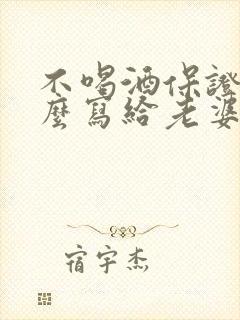 不喝酒保證
麼寫給老婆
宿宇杰